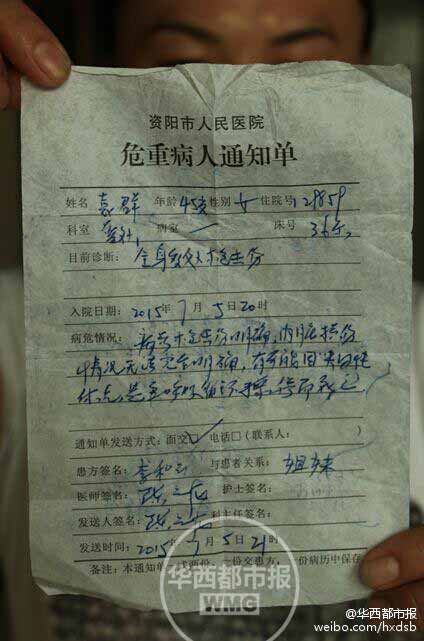 资阳市人民医院
危重病人通知单
姓名 袁群 年龄 45岁 性别 女 住院号 129859
科室 病室 一 床号 36
目前诊断: 全身多处枪击伤
入院日期: 2015年7月5日20时
病危情况: 枪击伤明确, 内脏损伤
情况无法完全明确, 有可能因失血性
休克
通知单发送方式: 面交☑ 电话□ (联系人: )
患方签名: 李和 与患者关系: 姐妹
医师签名: 护士签名:
发送人签名: 科主任签名:
发送时间: 2015年7月5日21
备注: 本通知单一式两份, 一份交患方, 一份病历中保存
华西都市报
WMG
@华西都市报
weibo.com/hxdsb